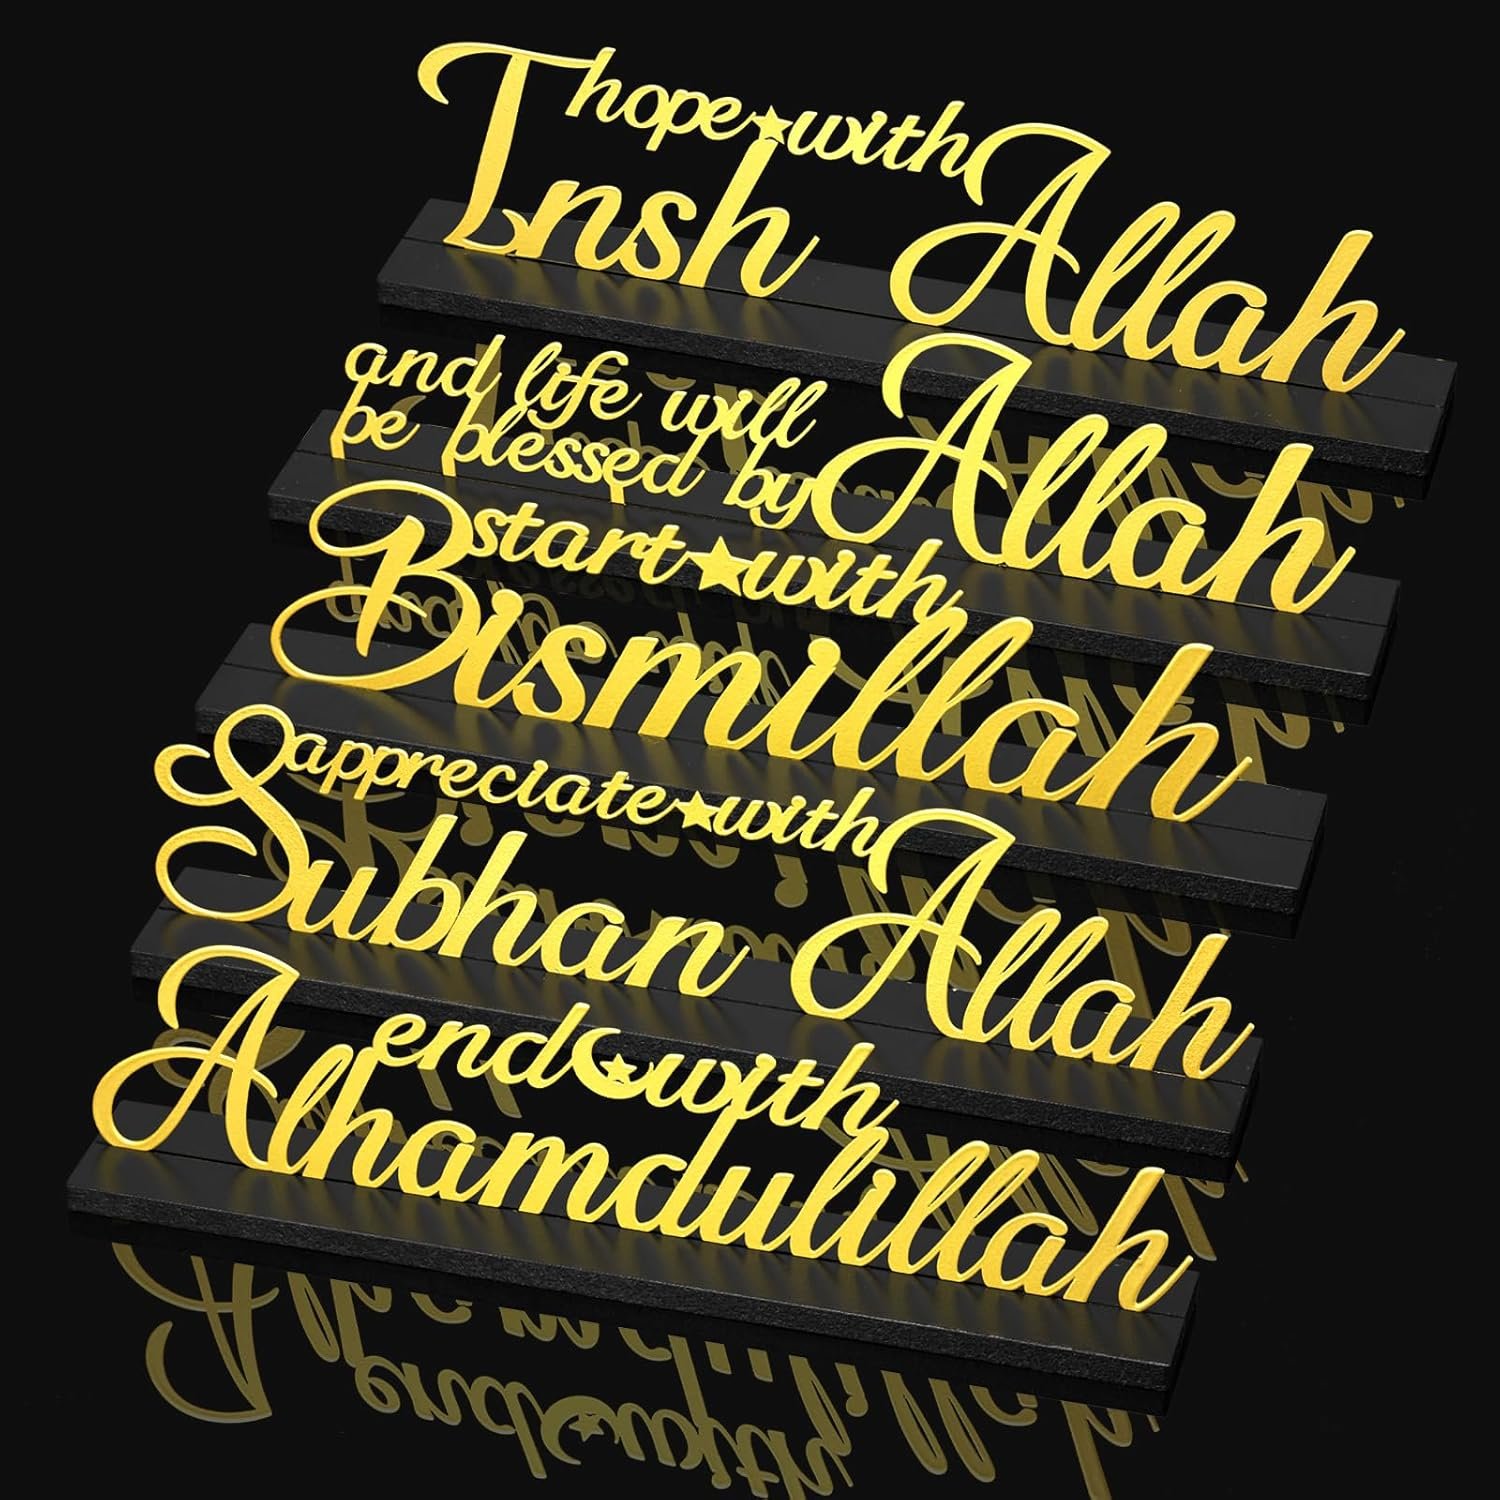 hope with
Insh Allah
and life will
be blessed by Allah
start with
Bismillah
appreciate with
Subhan Allah
end with
Alhamdulillah